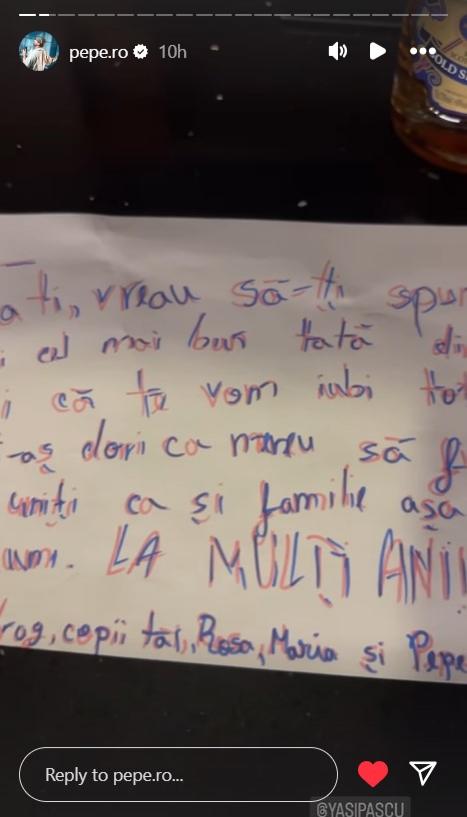 pepe.ro 10h
OLD S
a ti, vreau să-ți spun
i cel mai bun tată di
i că te vom iubi tot
-aș dori ca mereu să f
uniți ca și familie așa
um. LA MULȚI ANI
rog, copii tăi, Rosa, Maria și Pepe
Reply to pepe.ro...
@YASIPASCU